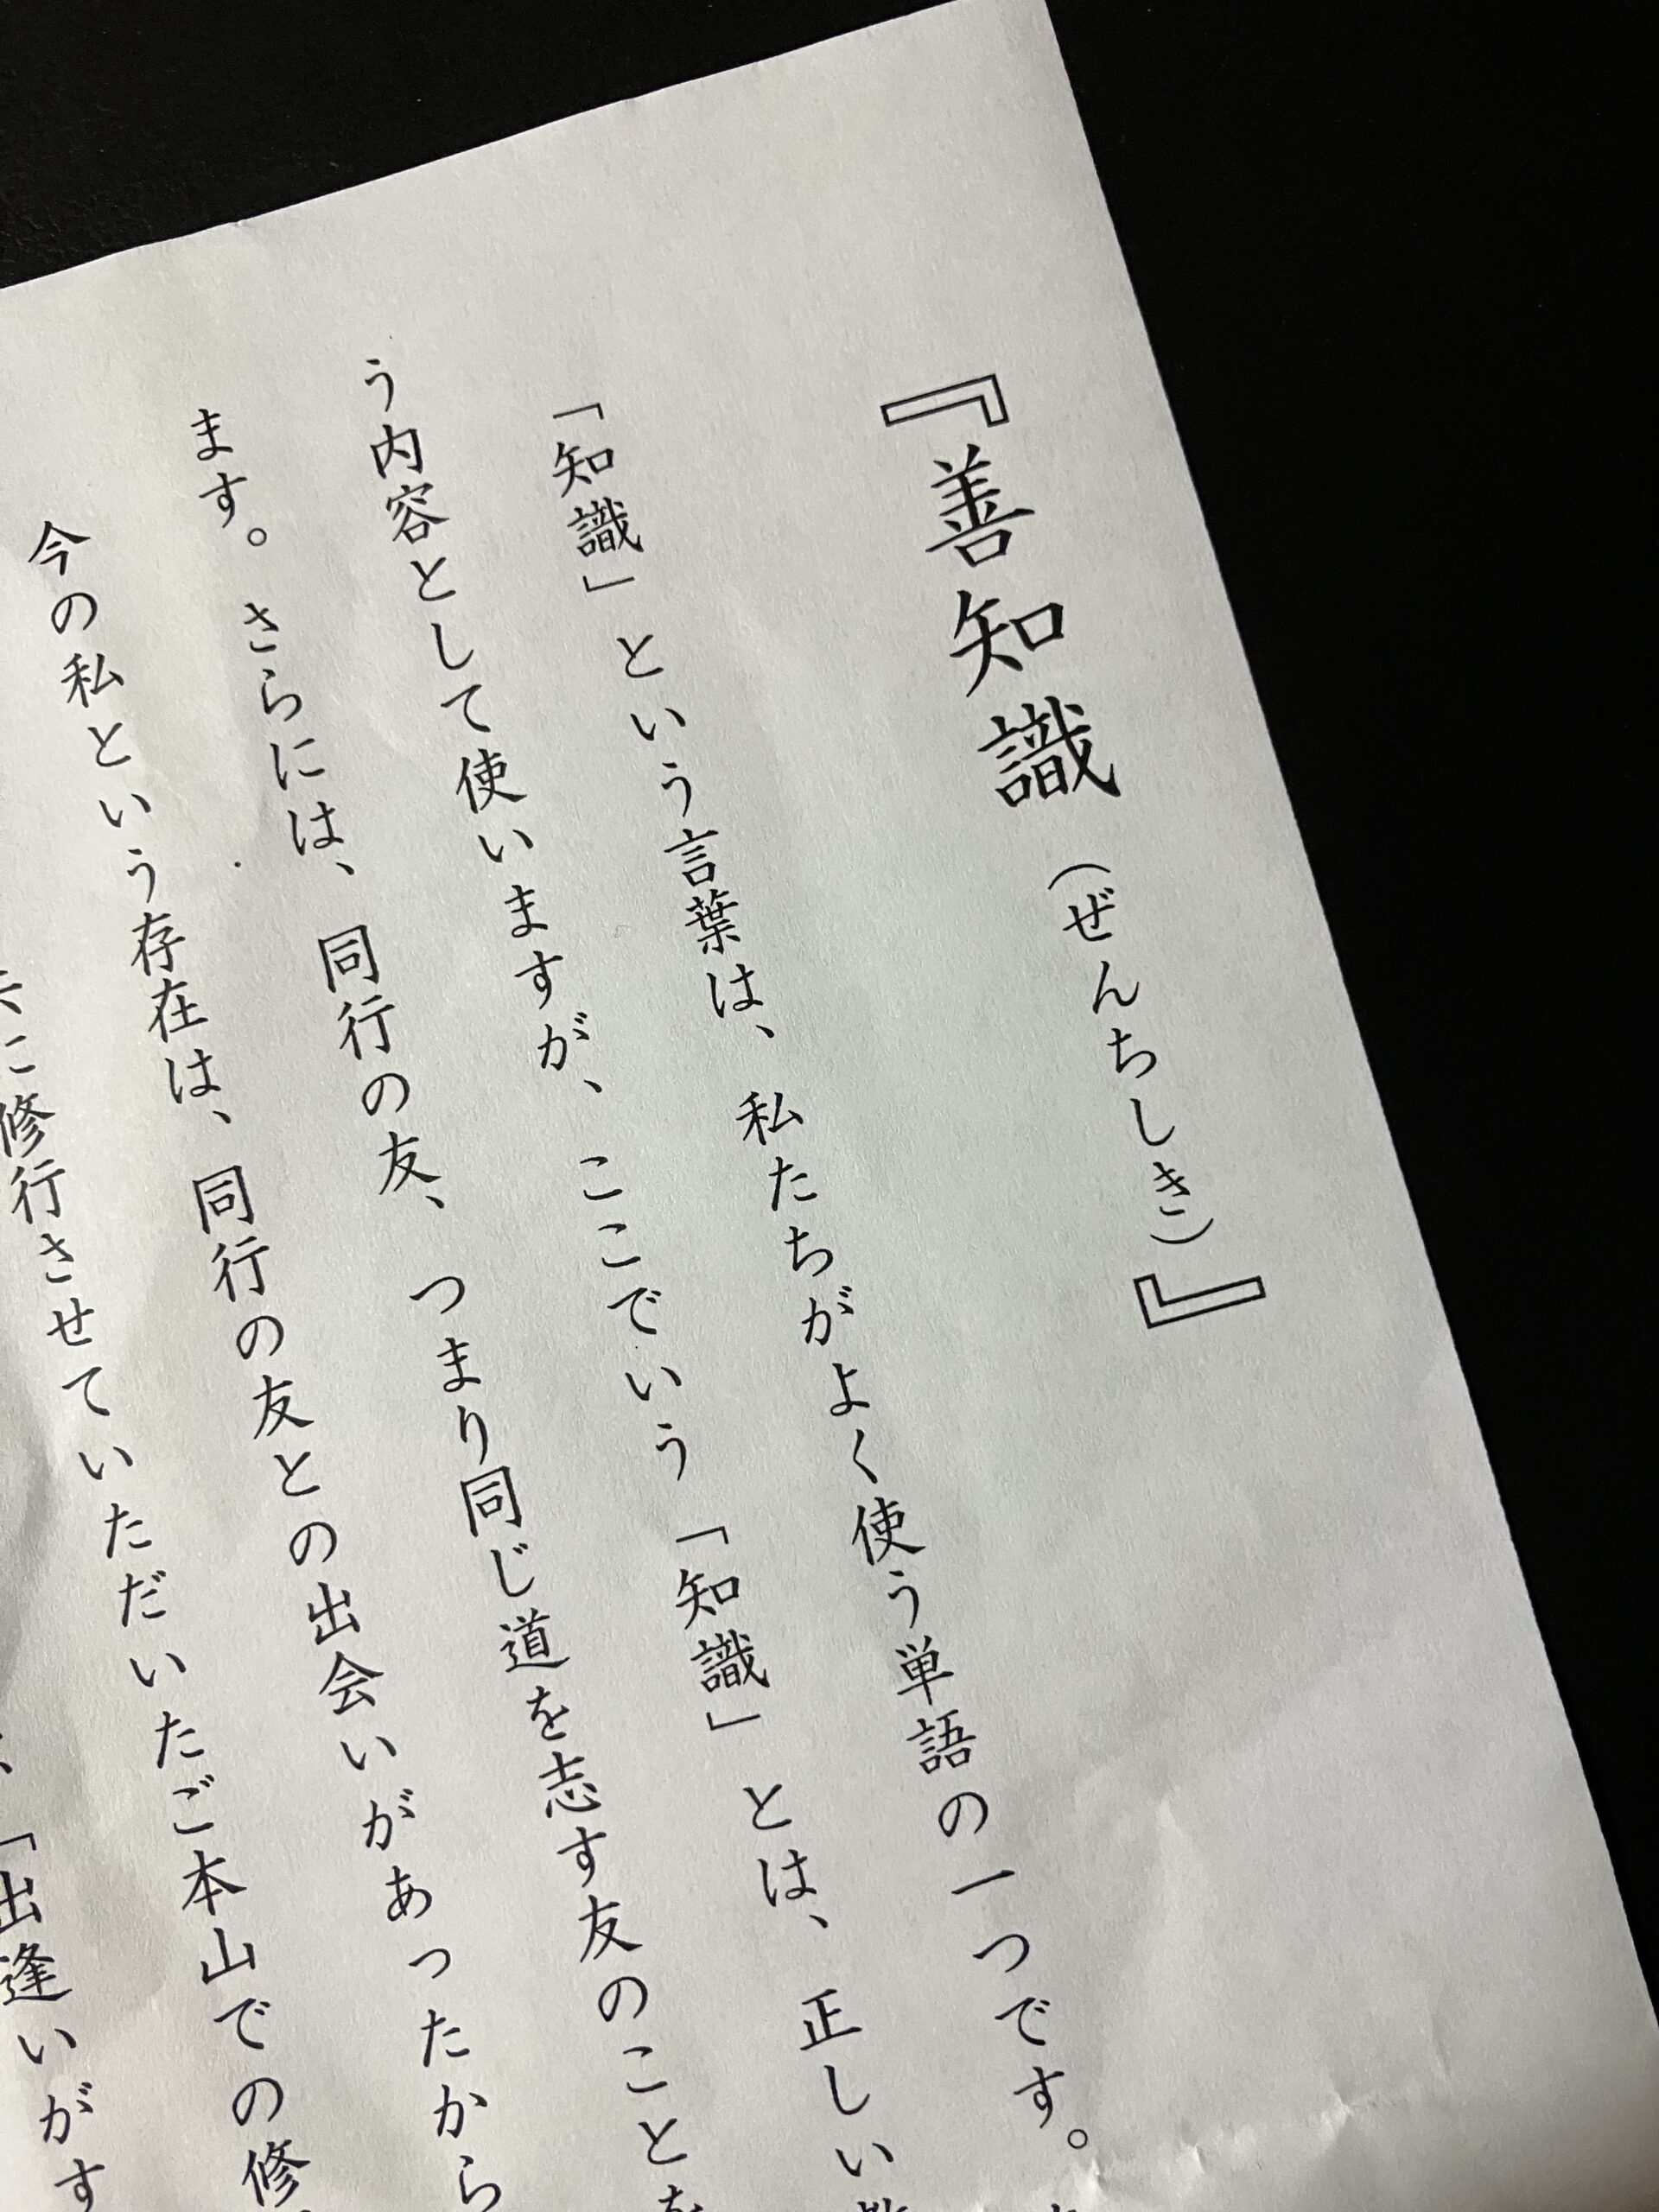 『善知識（ぜんちしき）』
「知識」という言葉は、私たちがよく使う単語の一つです。
う内容として使いますが、ここでいう「知識」とは、正しい
ます。さらには、同行の友、つまり同じ道を志す友のことを
今の私という存在は、同行の友との出会いがあったから
に修行させていただいたご本山での修
「出逢いがす